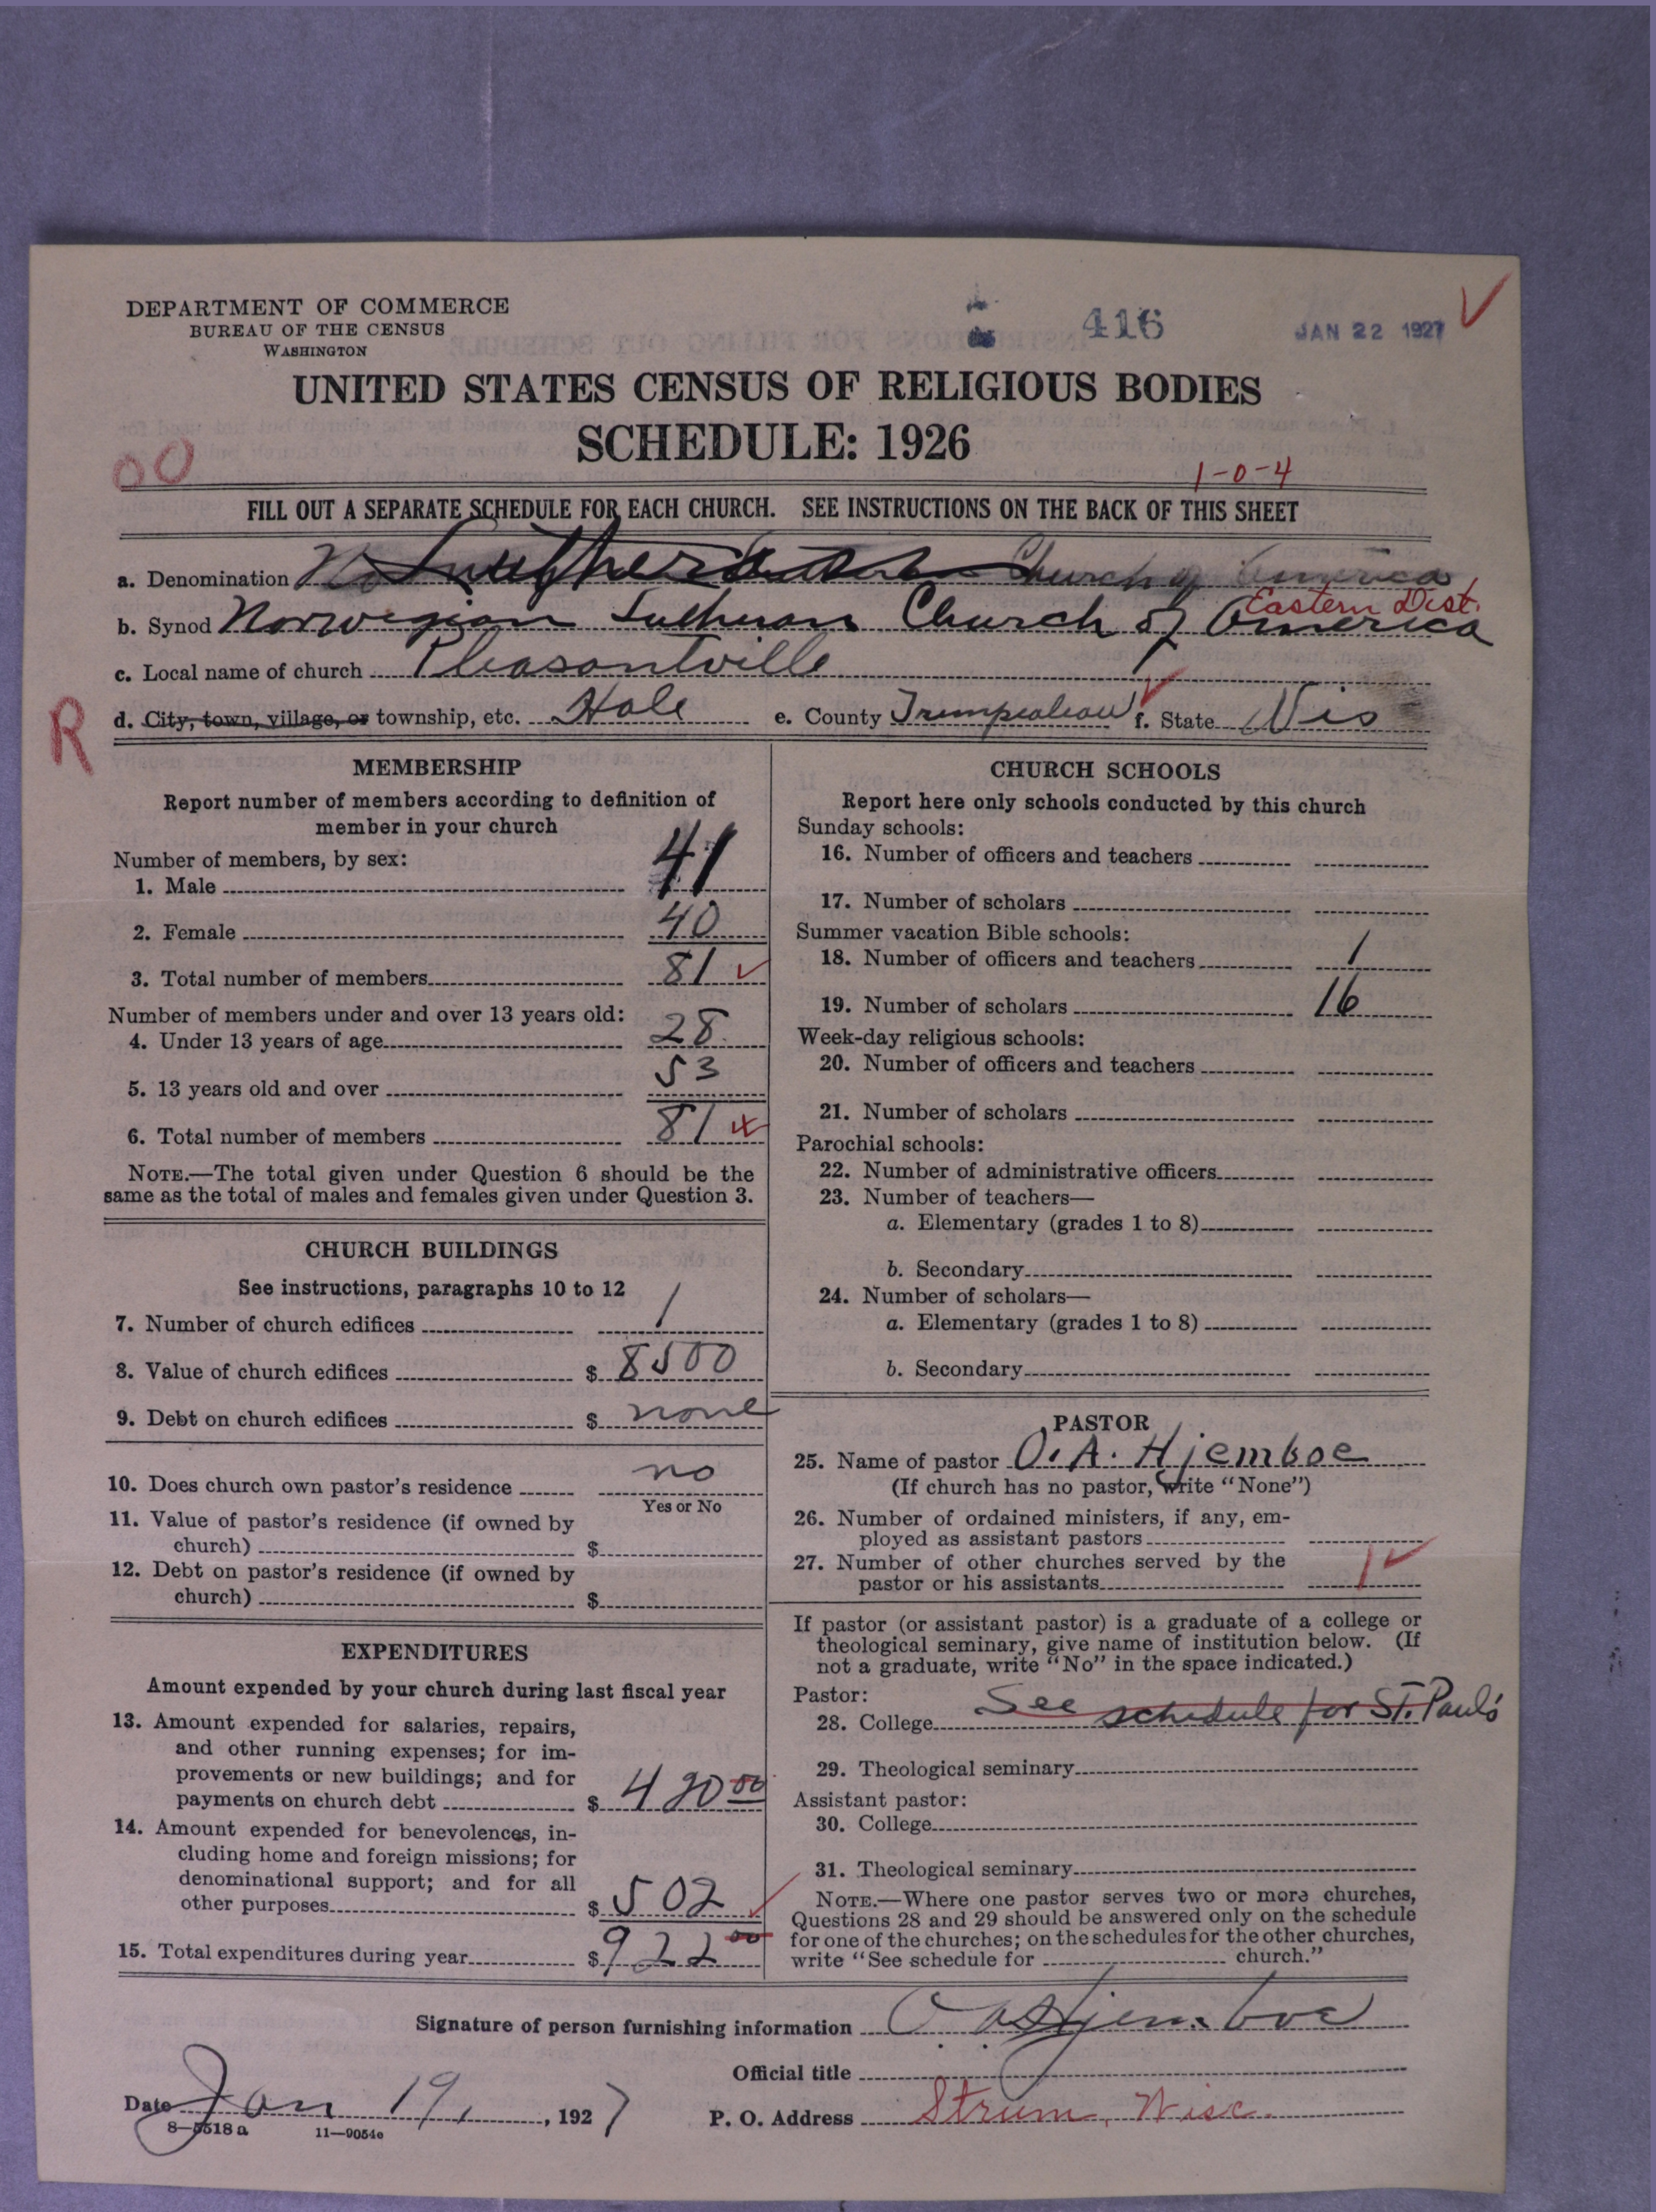 DEPARTMENT OF COMMERCE
BUREAU OF THE CENSUS
WASHINGTON
416
JAN 22 1927
UNITED STATES CENSUS OF RELIGIOUS BODIES
SCHEDULE: 1926
00
1-0-4
FILL OUT A SEPARATE SCHEDULE FOR EACH CHURCH. SEE INSTRUCTIONS ON THE BACK OF THIS SHEET
a. Denomination Lutheran Church of America
Eastern Dist.
b. Synod Norwegian Lutheran Church of America
c. Local name of church Pleasantville
R
d. City, town, village, or township, etc. Hale e. County Trempealeau f. State Wis
MEMBERSHIP
Report number of members according to definition of
member in your church
Number of members, by sex:
1. Male 41
2. Female 40
3. Total number of members 81
Number of members under and over 13 years old:
4. Under 13 years of age 28
5. 13 years old and over 53
6. Total number of members 81
NOTE.—The total given under Question 6 should be the
same as the total of males and females given under Question 3.
CHURCH BUILDINGS
See instructions, paragraphs 10 to 12
7. Number of church edifices 1
8. Value of church edifices $ 8500
9. Debt on church edifices $ none
10. Does church own pastor's residence no
Yes or No
11. Value of pastor's residence (if owned by
church) $
12. Debt on pastor's residence (if owned by
church) $
EXPENDITURES
Amount expended by your church during last fiscal year
13. Amount expended for salaries, repairs,
and other running expenses; for im-
provements or new buildings; and for
payments on church debt $ 420 00
14. Amount expended for benevolences, in-
cluding home and foreign missions; for
denominational support; and for all
other purposes $ 502
15. Total expenditures during year $ 922 00
CHURCH SCHOOLS
Report here only schools conducted by this church
Sunday schools:
16. Number of officers and teachers
17. Number of scholars
Summer vacation Bible schools:
18. Number of officers and teachers 1
19. Number of scholars 16
Week-day religious schools:
20. Number of officers and teachers
21. Number of scholars
Parochial schools:
22. Number of administrative officers
23. Number of teachers—
a. Elementary (grades 1 to 8)
b. Secondary
24. Number of scholars—
a. Elementary (grades 1 to 8)
b. Secondary
PASTOR
25. Name of pastor O. A. Hjemboe
(If church has no pastor, write "None")
26. Number of ordained ministers, if any, em-
ployed as assistant pastors
27. Number of other churches served by the
pastor or his assistants 1
If pastor (or assistant pastor) is a graduate of a college or
theological seminary, give name of institution below. (If
not a graduate, write "No" in the space indicated.)
Pastor:
28. College See schedule for St. Paul's
29. Theological seminary
Assistant pastor:
30. College
31. Theological seminary
NOTE.—Where one pastor serves two or more churches,
Questions 28 and 29 should be answered only on the schedule
for one of the churches; on the schedules for the other churches,
write "See schedule for church."
Signature of person furnishing information O. A. Hjemboe
Official title
Date Jan 19, 1927
P. O. Address Strum, Wisc.
8—5518 a 11—9054e